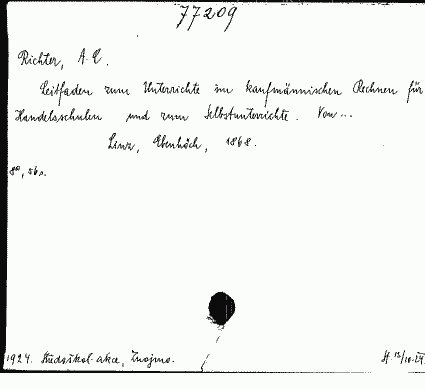 77209
Richter, A. E.
Leitfaden zum Unterrichte im kaufmännischen Rechnen für
Handelsschulen und zum Selbstunterrichte. Von ...
Linz, Ebenhöch, 1868.
8°, 56 s.
1924. akce, Znojmo.